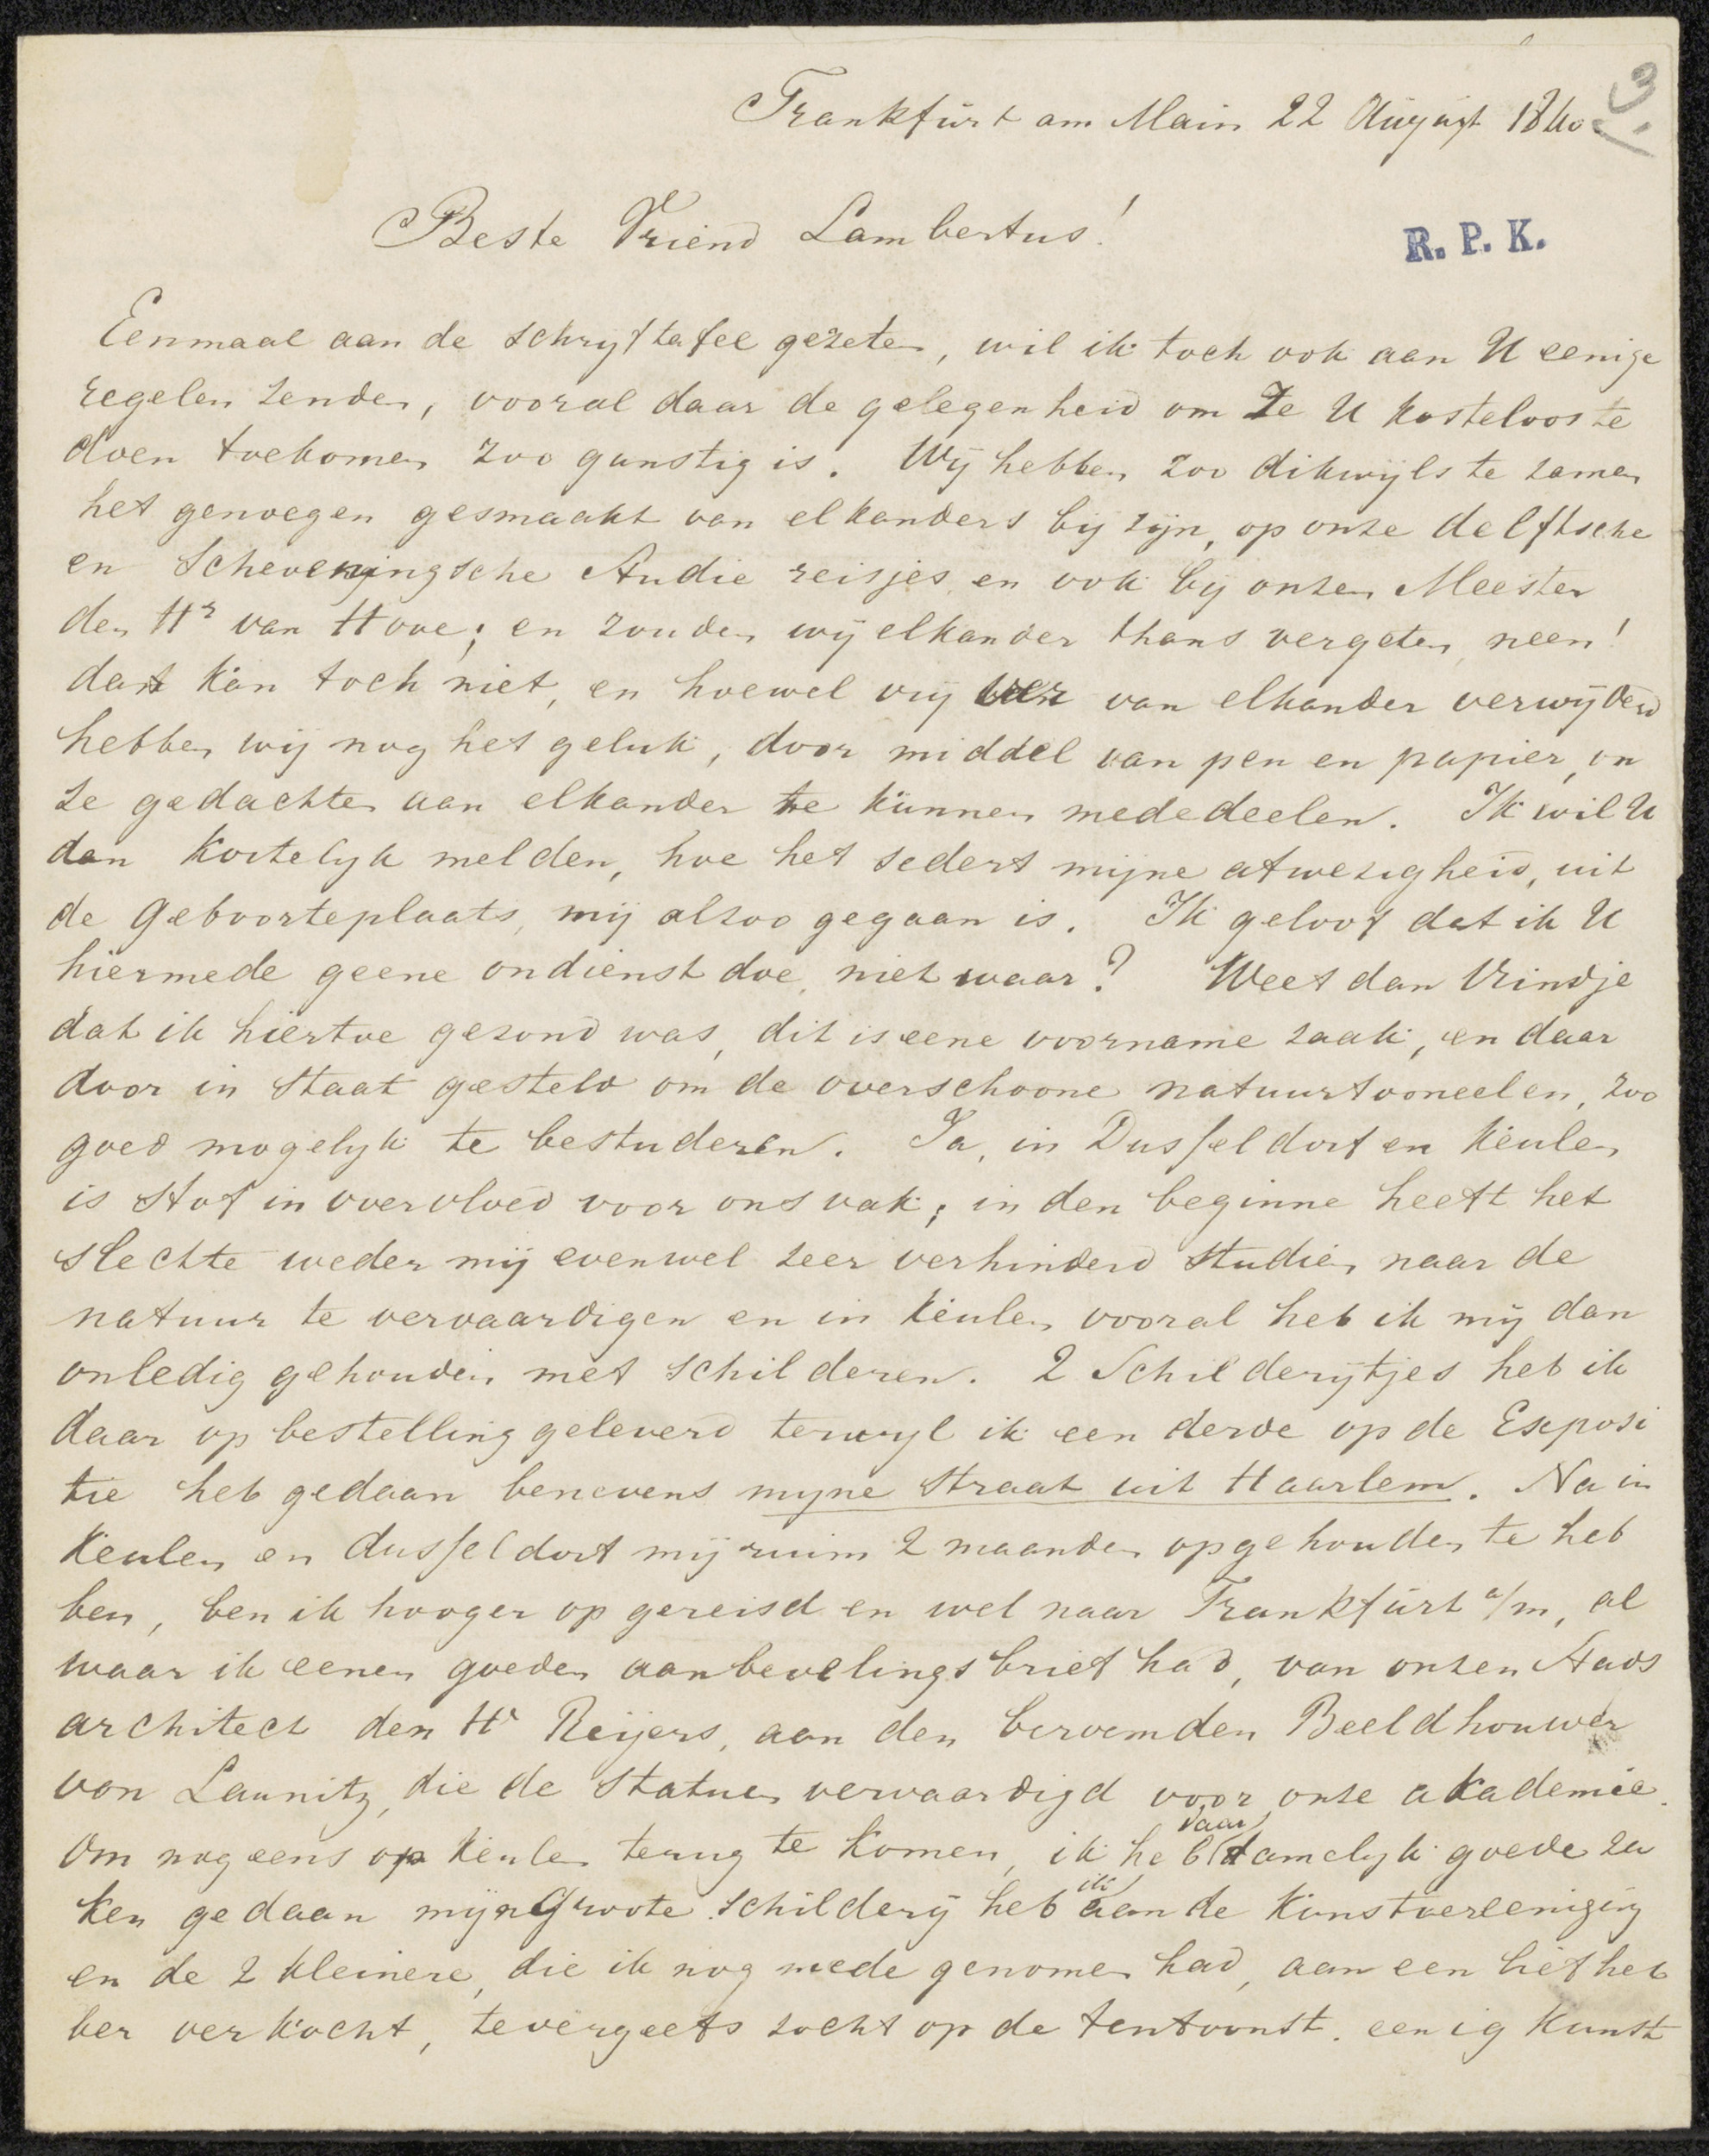 3
Frankfúrt am Main 22 Aúgúst 1840
Beste Vriend Lambertus!
R. P. K.
Eenmaal aan de schryftafel gezeten, wil ik toch ook aan U eenige
regelen zenden, vooral daar de gelegenheid om Ze U kosteloos te
doen toekomen zoo gunstig is. Wij hebben zoo dikwyls te zamen
het genoegen gesmaakt van elkanders bij zijn, op onze delftsche
en Scheveningsche Studie reisjes en ook bij onzen Meester
den Hr van Hove; en zouden wij elkander thans vergeten, neen!
dat kan toch niet, en hoewel vrij ver van elkander verwijderd
hebben wij nog het geluk, door middel van pen en papier, on
ze gedachten aan elkander te kúnnen mededeelen. Ik wil U
dan kortelyk melden, hoe het sedert mijne afwezigheid, uit
de Geboorteplaats, mij alzoo gegaan is. Ik geloof dat ik U
hiermede geene ondienst doe, niet waar? Weet dan Vrindje
dat ik hiertoe gezond was, dit is eene voorname zaak, en daar
door in staat gesteld om de overschoone natuurtooneelen, zoo
goed mogelyk te bestuderen. Ja, in Dusseldorf en Keulen
is stof in overvloed voor ons vak; in den beginne heeft het
slechte weder mij evenwel zeer verhinderd studien naar de
natuur te vervaardigen en in Keulen vooral heb ik mij dan
onledig gehouden met schilderen. 2 Schilderijtjes heb ik
daar op bestelling geleverd terwyl ik een derde op de Exposi
tie heb gedaan benevens myne straat uit Haarlem. Na in
Keulen en dusseldorf mij ruim 2 maanden opgehouden te heb
ben, ben ik hooger op gereisd en wel naar Frankfúrt a/m, al
waar ik eenen goeden aanbevelingsbrief had, van onzen Stads
architect den Hr Reijers, aan den beroemden Beeldhouwer
von Launitz, die de statuen vervaardigd voor onze akademie.
Om nog eens op Keulen terug te komen, ik heb daar tamelyk goede za
ken gedaan mijn Groote schildery heb ik aan de Kunstvereeniging
en de 2 kleinere, die ik nog mede genomen had, aan een liefheb
ber verkocht, tevergeefs zocht op de tentoonst. eenig Kunst